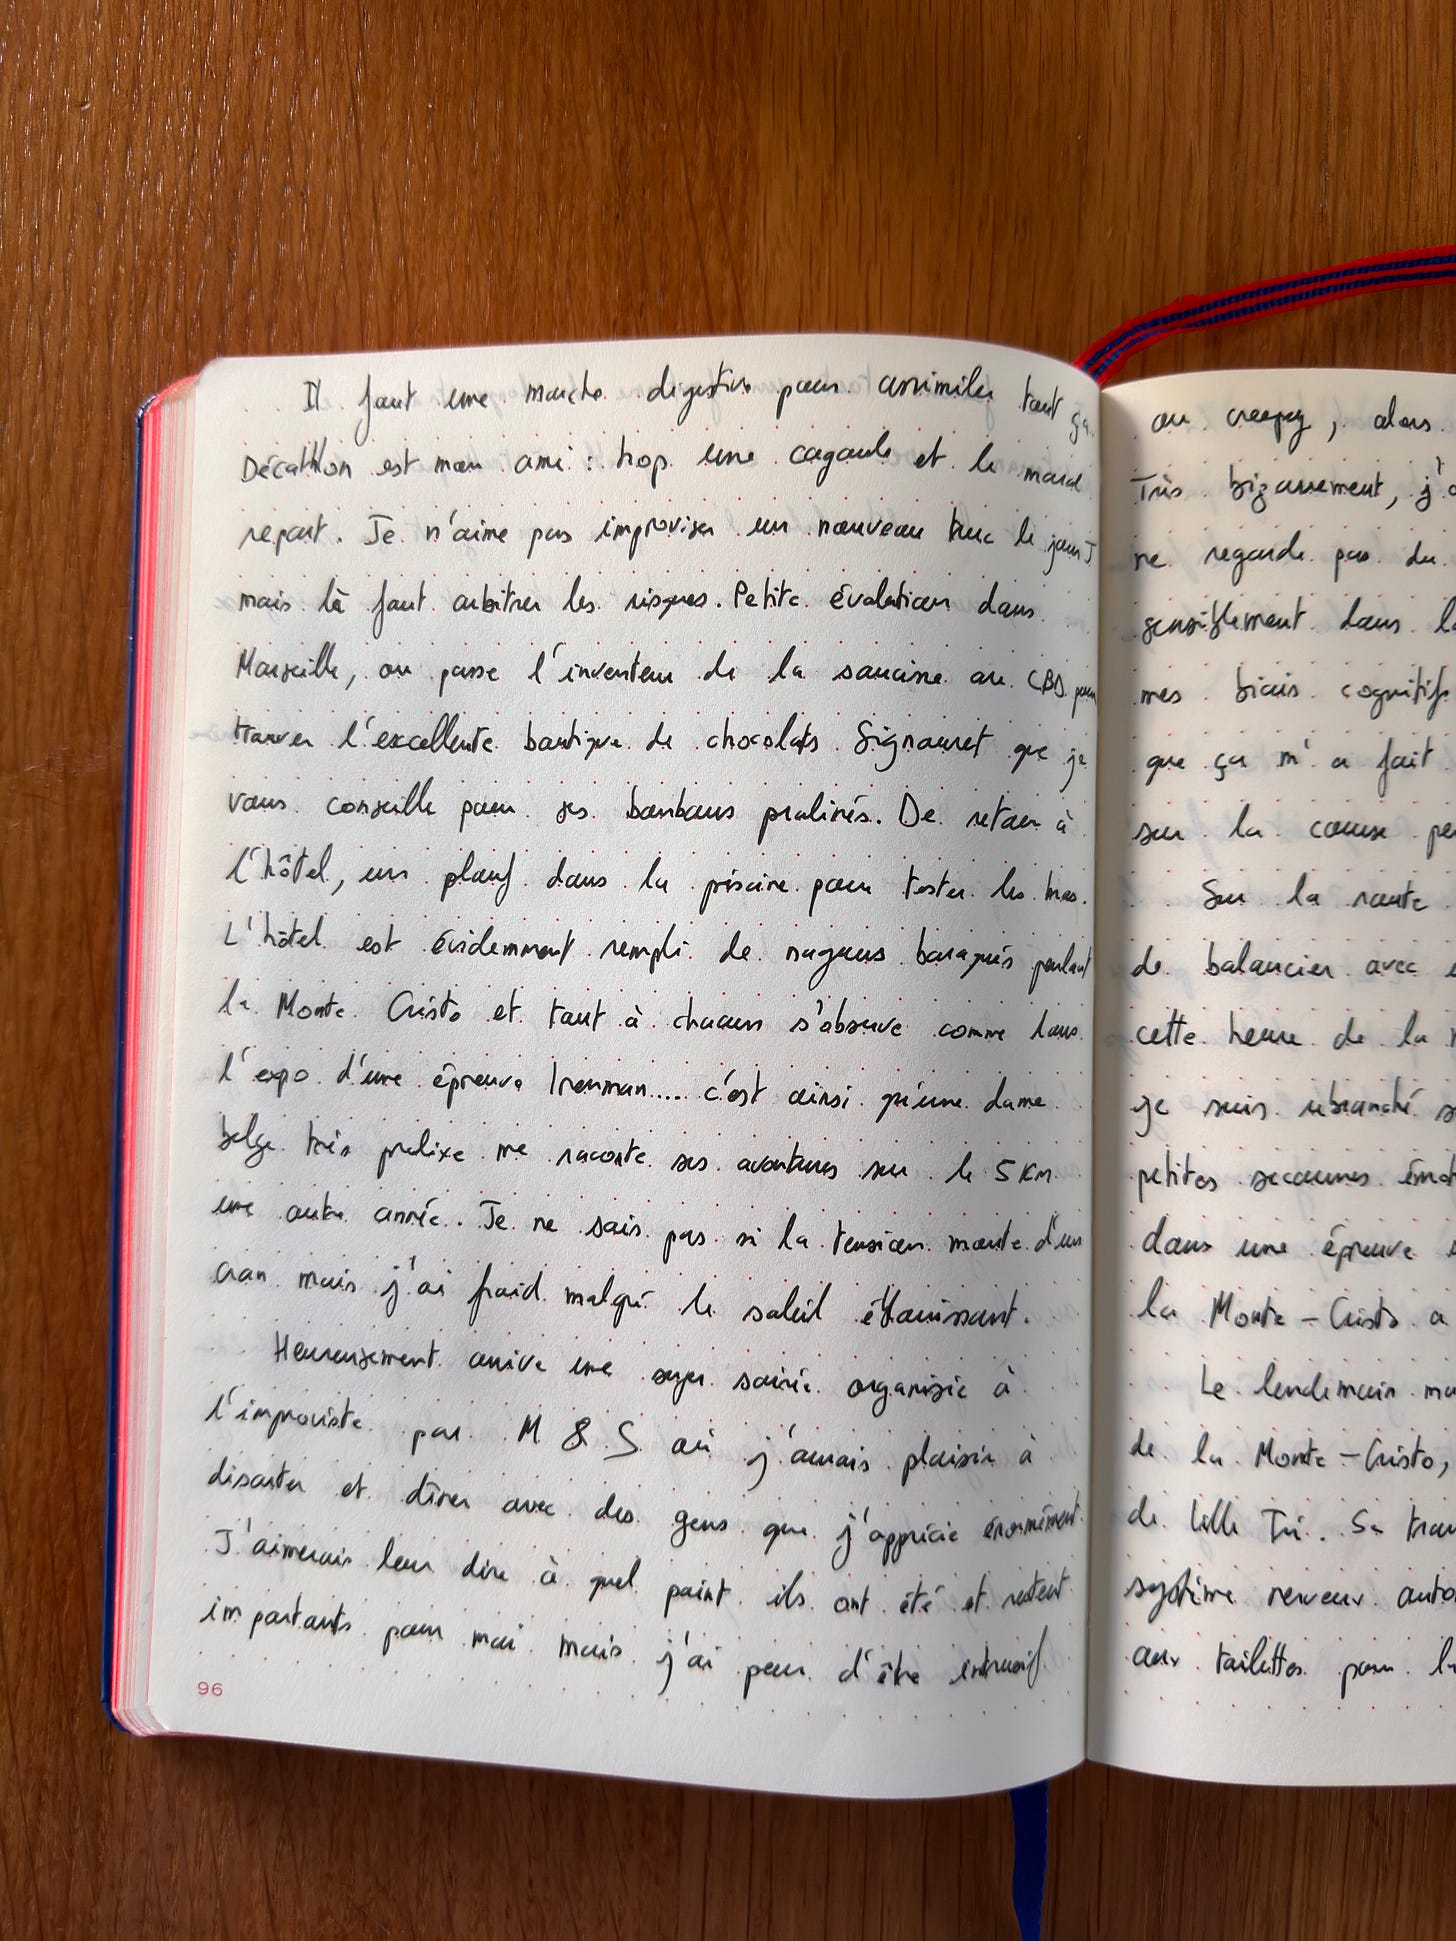 Il faut une marche digestive pour assimiler tout ça.
Décathlon est mon ami : hop une cagoule et le moral
repart. Je n'aime pas improviser un nouveau truc le jour J
mais là faut arbitrer les risques. Petite évolution dans
Marseille, on passe l'inventeur de la saucisse au CBD pour
trouver l'excellente boutique de chocolats Signouret que je
vous conseille pour ses bonbons pralinés. De retour à
l'hôtel, un plouf dans la piscine pour tester les bras.
L'hôtel est évidemment rempli de nageurs baraqués parlant
la Monte Cristo et tout à chacun s'observe comme dans
l'expo d'une épreuve Ironman.... c'est ainsi qu'une dame
belge très prolixe me raconte ses aventures sur le 5 km
une autre année. Je ne sais pas si la tension monte d'un
cran mais j'ai froid malgré le soleil éblouissant.
Heureusement arrive une super soirée organisée à
l'improviste par M & S où j'aurais plaisir à
discuter et dîner avec des gens que j'apprécie énormément.
J'aimerais leur dire à quel point ils ont été et restent
importants pour moi mais j'ai peur d'être intrusif
96
ou creepy, alors
Très bizarrement,
ne regarde pas du
sensiblement dans
mes biais cognitifs
que ça m'a fait
sur la course
Sur la route
de balancier avec
cette heure de la
je suis rebranché
petites secousses
dans une épreuve
la Monte-Cristo a
Le lendemain
de la Monte-Cristo,
de Lille Tri. Sa
système nerveux
aux toilettes pour